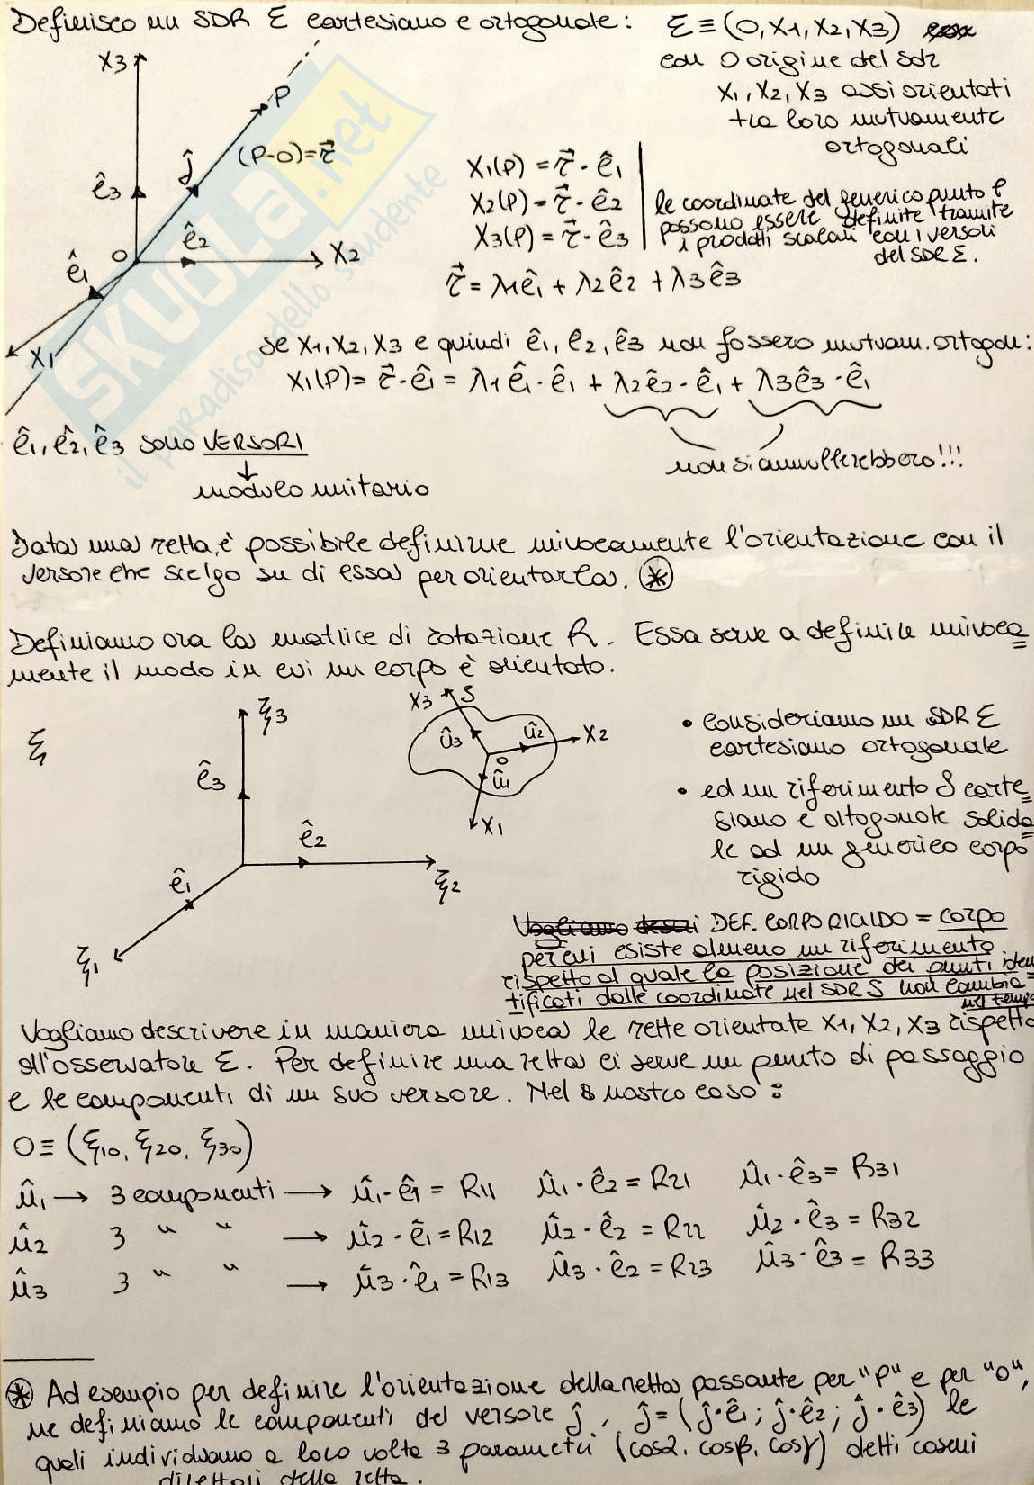 Definisco un SDR Σ cartesiano e ortogonale: Σ ≡ (O, X1, X2, X3)
con O origine del sdr
X1, X2, X3 assi orientati
tra loro mutuamente
ortogonali
X3
P
(P-O)=r⃗
ĵ
ê3
O
ê2
X2
ê1
X1
X1(P) = r⃗ · ê1
X2(P) = r⃗ · ê2
X3(P) = r⃗ · ê3
le coordinate del generico punto P
possono essere definite tramite
i prodotti scalari con i versori
del SDR Σ.
r⃗ = λ1ê1 + λ2ê2 + λ3ê3
se X1, X2, X3 e quindi ê1, ê2, ê3 non fossero mutuam. ortogon:
X1(P) = r⃗ · ê1 = λ1 ê1 · ê1 + λ2ê2 · ê1 + λ3ê3 · ê1
non si annullerebbero!!!
ê1, ê2, ê3 sono VERSORI
↓
modulo unitario
Data una retta, è possibile definirne univocamente l'orientazione con il
versore che scelgo su di essa per orientarla. ⊛
Definiamo ora la matrice di rotazione R. Essa serve a definire univoca
mente il modo in cui un corpo è orientato.
ξ
ξ3
ê3
ê2
ξ2
ê1
ξ1
X3
S
û3
û2
X2
O
û1
X1
• consideriamo un SDR Σ
cartesiano ortogonale
• ed un riferimento S carte
siano e ortogonale solida
le ad un generico corpo
rigido
DEF. CORPO RIGIDO = corpo
per cui esiste almeno un riferimento
rispetto al quale la posizione dei punti iden
tificati dalle coordinate nel SDR S non cambia
nel tempo
Vogliamo descrivere in maniera univoca le rette orientate X1, X2, X3 rispetto
all'osservatore Σ. Per definire una retta ci serve un punto di passaggio
e le componenti di un suo versore. Nel nostro caso:
O ≡ (ξ10, ξ20, ξ30)
û1 → 3 componenti → û1 · ê1 = R11 û1 · ê2 = R21 û1 · ê3 = R31
û2 3 " " → û2 · ê1 = R12 û2 · ê2 = R22 û2 · ê3 = R32
û3 3 " " → û3 · ê1 = R13 û3 · ê2 = R23 û3 · ê3 = R33
⊛ Ad esempio per definire l'orientazione della retta passante per "P" e per "O",
ne definiamo le componenti del versore ĵ, ĵ = (ĵ·ê1; ĵ·ê2; ĵ·ê3) le
quali individuano a loro volta 3 parametri (cosα, cosβ, cosγ) detti coseni
direttori della retta.
SKUOLA.net
il paradiso dello studente